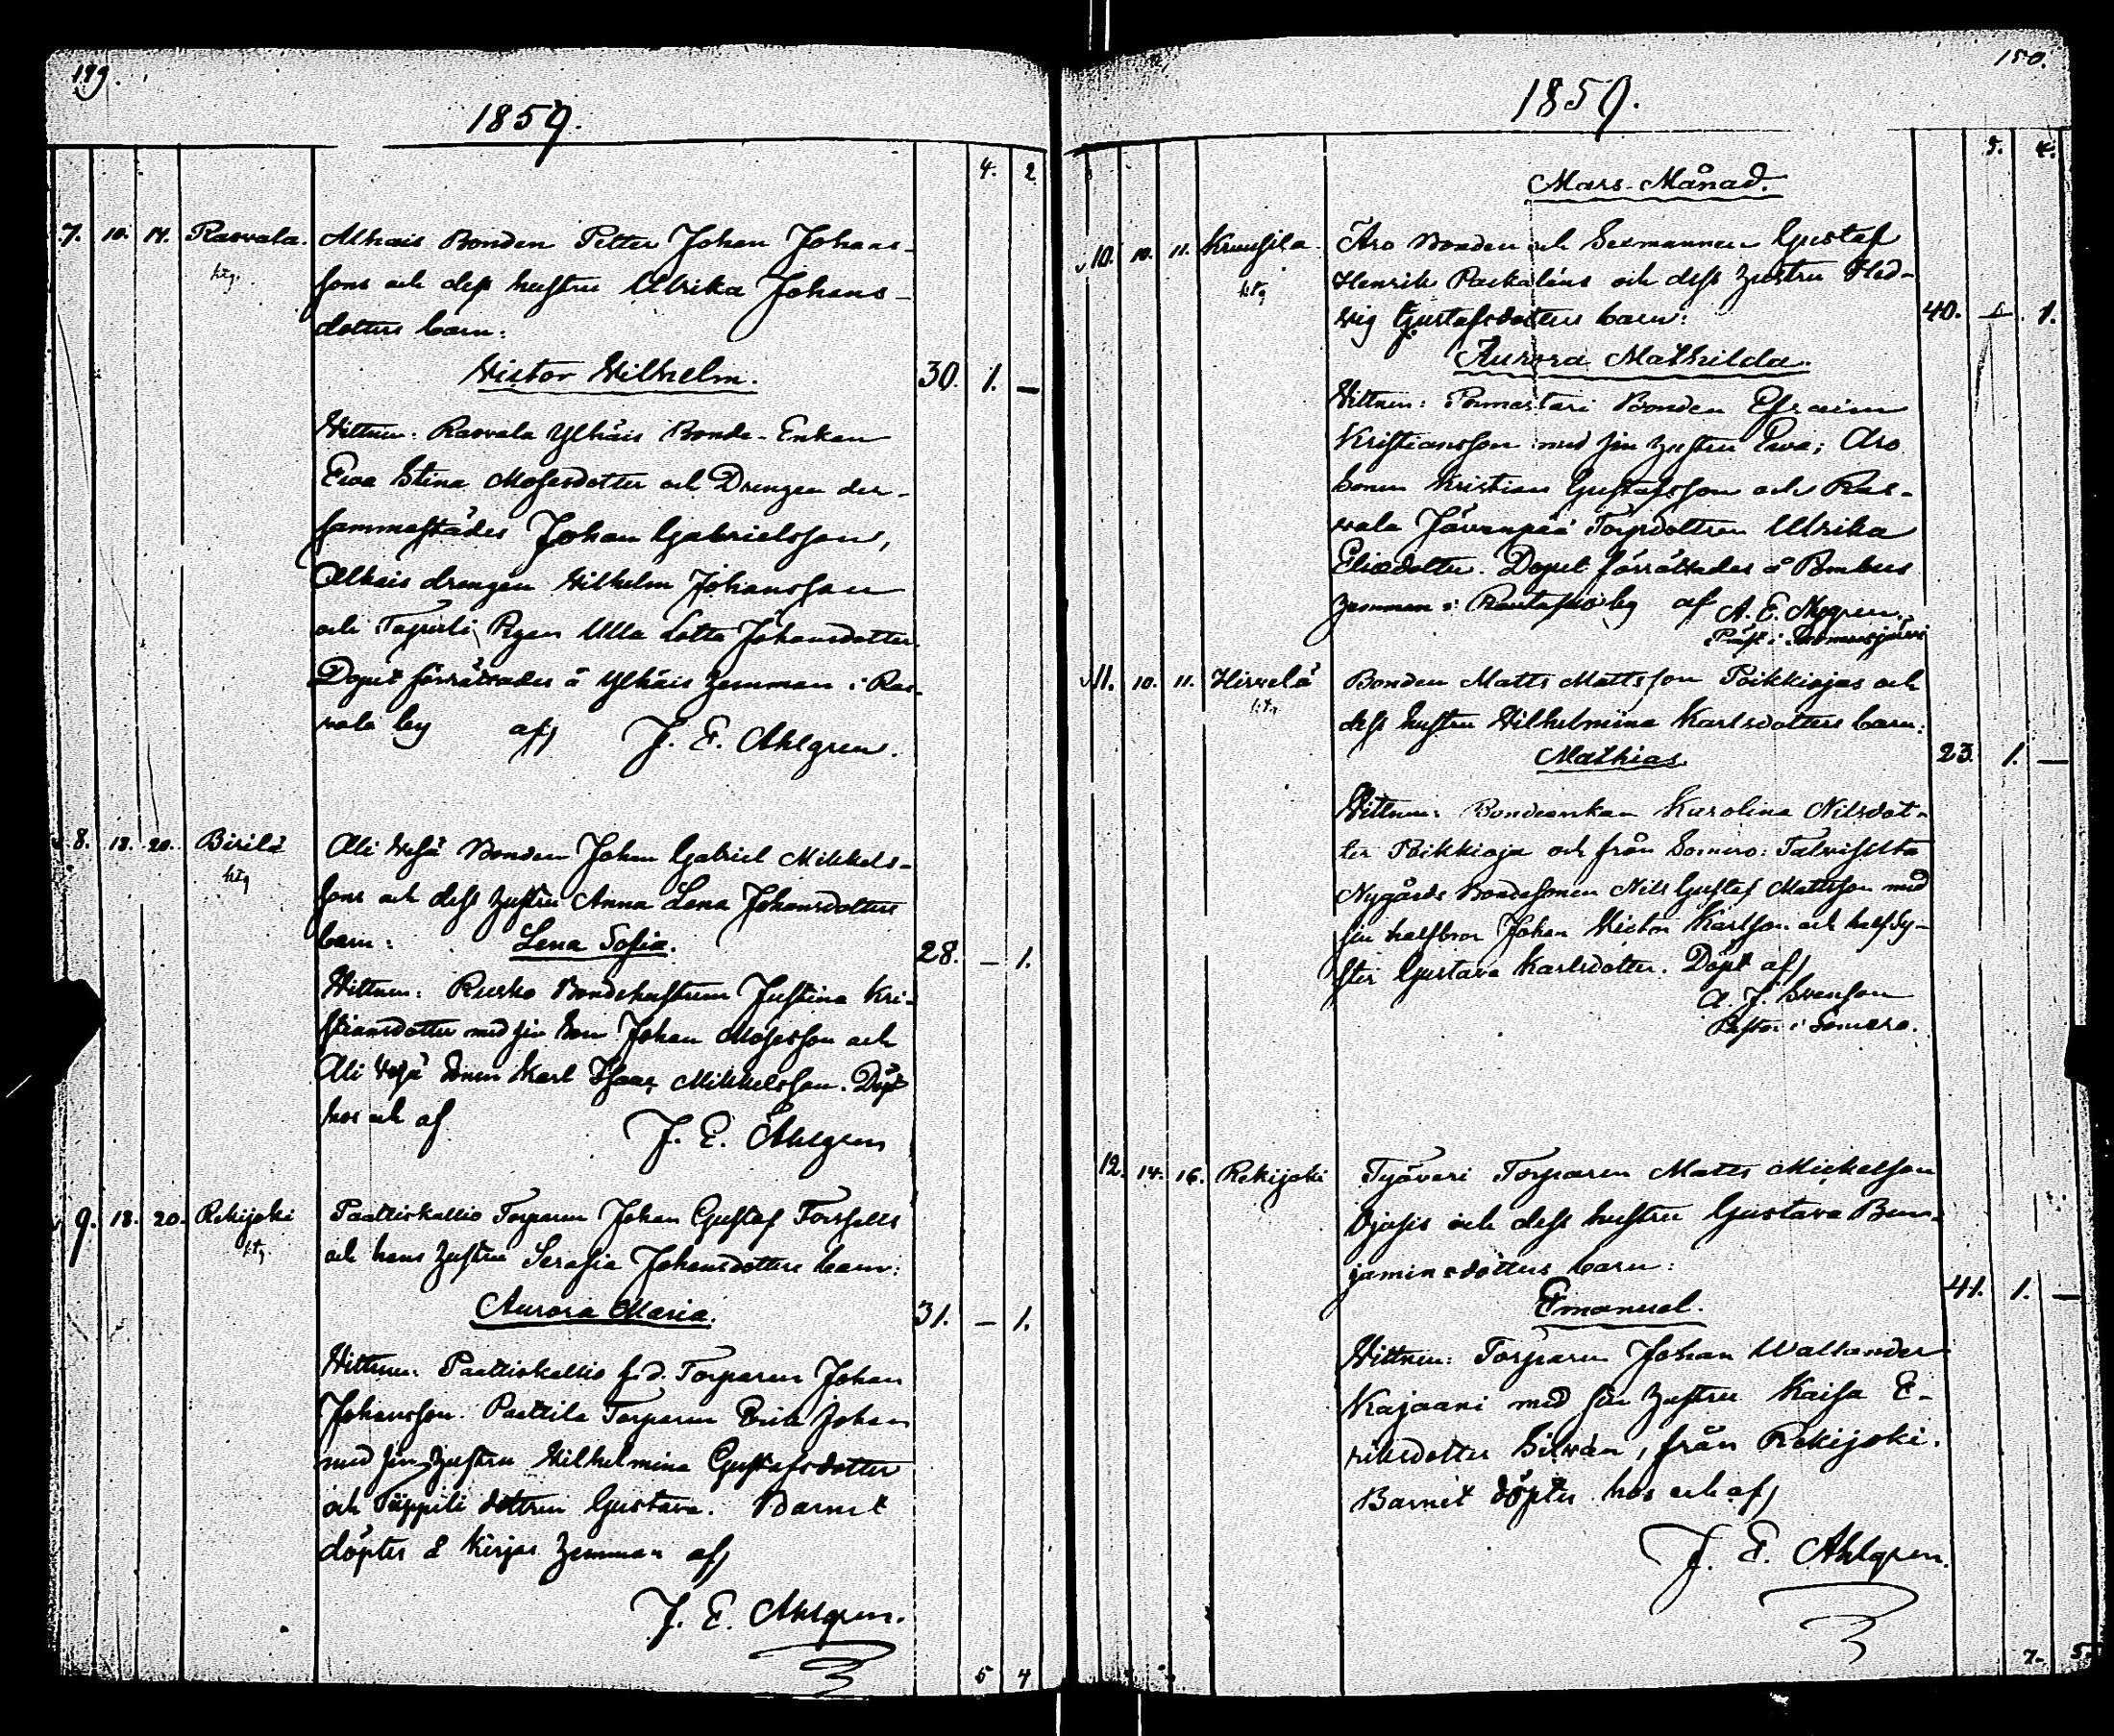 149.
1859.
4. 2.
7. 10. 14. Rasvala. Alhais Bonden Petter Johan Johans-
htg. sons och dess hustru Ulrika Johans-
dotters barn:
Victor Wilhelm. 30. 1. —
Vittnen: Rasvala Ylhäis Bonde-Enkan
Ewa Stina Mosesdotter och Drengen der-
sammastädes Johan Gabrielsson,
Alhais drengen Wilhelm Johansson
och Pigan Ulla Lotta Johansdotter.
Dopet förrättades å Ylhäis hemman i Ras-
vala by af J. E. Ahlgren.
8. 18. 20. Pirilä Ali Wesä Bonden Johan Gabriel Mikkels-
htg sons och dess hustru Anna Lena Johansdotters
barn: Lena Sofia. 28. — 1.
Vittnen: Rusko Bondehustrun Justina Kri-
stiansdotter med sin Son Johan Mosesson och
Ali Wesä Sonen Karl Isaac Mikkelsson. Döpt
hos och af J. E. Ahlgren
9. 18. 20. Rekijoki Paaliskallio Torparen Johan Gustaf Forssells
htg och hans hustru Serafia Johansdotters barn:
Aurora Maria. 31. — 1.
Vittnen: Paaliskallio f.d. Torparen Johan
Johansson. Paltila Torparen Erik Johan
med sin hustru Wilhelmina Gustafsdotter
och dottren Gustava. Barnet
döptes å Kirjas hemman af
J. E. Ahlgren.
5 4
150.
1859.
5. 4.
Mars-Månad.
10. 10. 11. Kruusila Äro Bonden och Sexmannen Gustaf
htg Henrik Paskaléns och dess hustru Hed-
wig Gustafsdotters barn: 40. — 1.
Aurora Mathilda.
Vittnen: Pormestari Bonden Efraim
Kristiansson med sin hustru Ewa; Äro
Sonen Kristian Gustafsson och Ras-
wala Jävenpää Torpdottren Ulrika
Eliedotter. Dopet förrättades å
hemman i by af A. E. Nygren.
Präst i Somerojärvi
11. 10. 11. Hirvelä Bonden Matts Mattsson Poikkiojas och
htg dess hustru Wilhelmina Karlsdotters barn:
Mathias. 23. 1. —
Vittnen: Bondeenkan Karolina Nilsdot-
ter Poikkioja och från Somero: Talvisilta
Nygårds Bondesonen Nils Gustaf Mattsson med
sin halfbror Johan Victor Karlsson och halfsy-
ster Gustava Karlsdotter. Döpt af
A. J. Svensson
Pastor i Somero.
12. 14. 16. Rekijoki Työväri Torparen Matts Mickelsson
Ojasis och dess hustru Gustava Ben-
jaminsdotters barn:
Emanuel. 41. 1. —
Vittnen: Torparen Johan Wallander
Kajaani med sin hustru Kaisa E-
riksdotter Silwan, från Rekijoki.
Barnet döptes hos och af
J. E. Ahlgren.
7. 5.